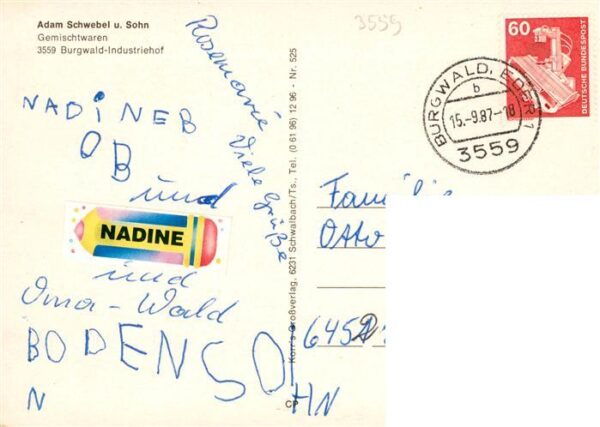 Adam Schwebel u. Sohn
Gemischtwaren
3559 Burgwald-Industriehof
3559
60
DEUTSCHE BUNDESPOST
BURGWALD, EDER 1
b
15.-9.87-18
3559
Rosemarie
Viele Grüße
NADINEB
OB
und
NADINE
und
Oma-Wald
BODENSOHN
N
Korr's Großverlag, 6231 Schwalbach/Ts., Tel. (0 61 96) 12 96 - Nr. 525
CP
Familie
Otto
645